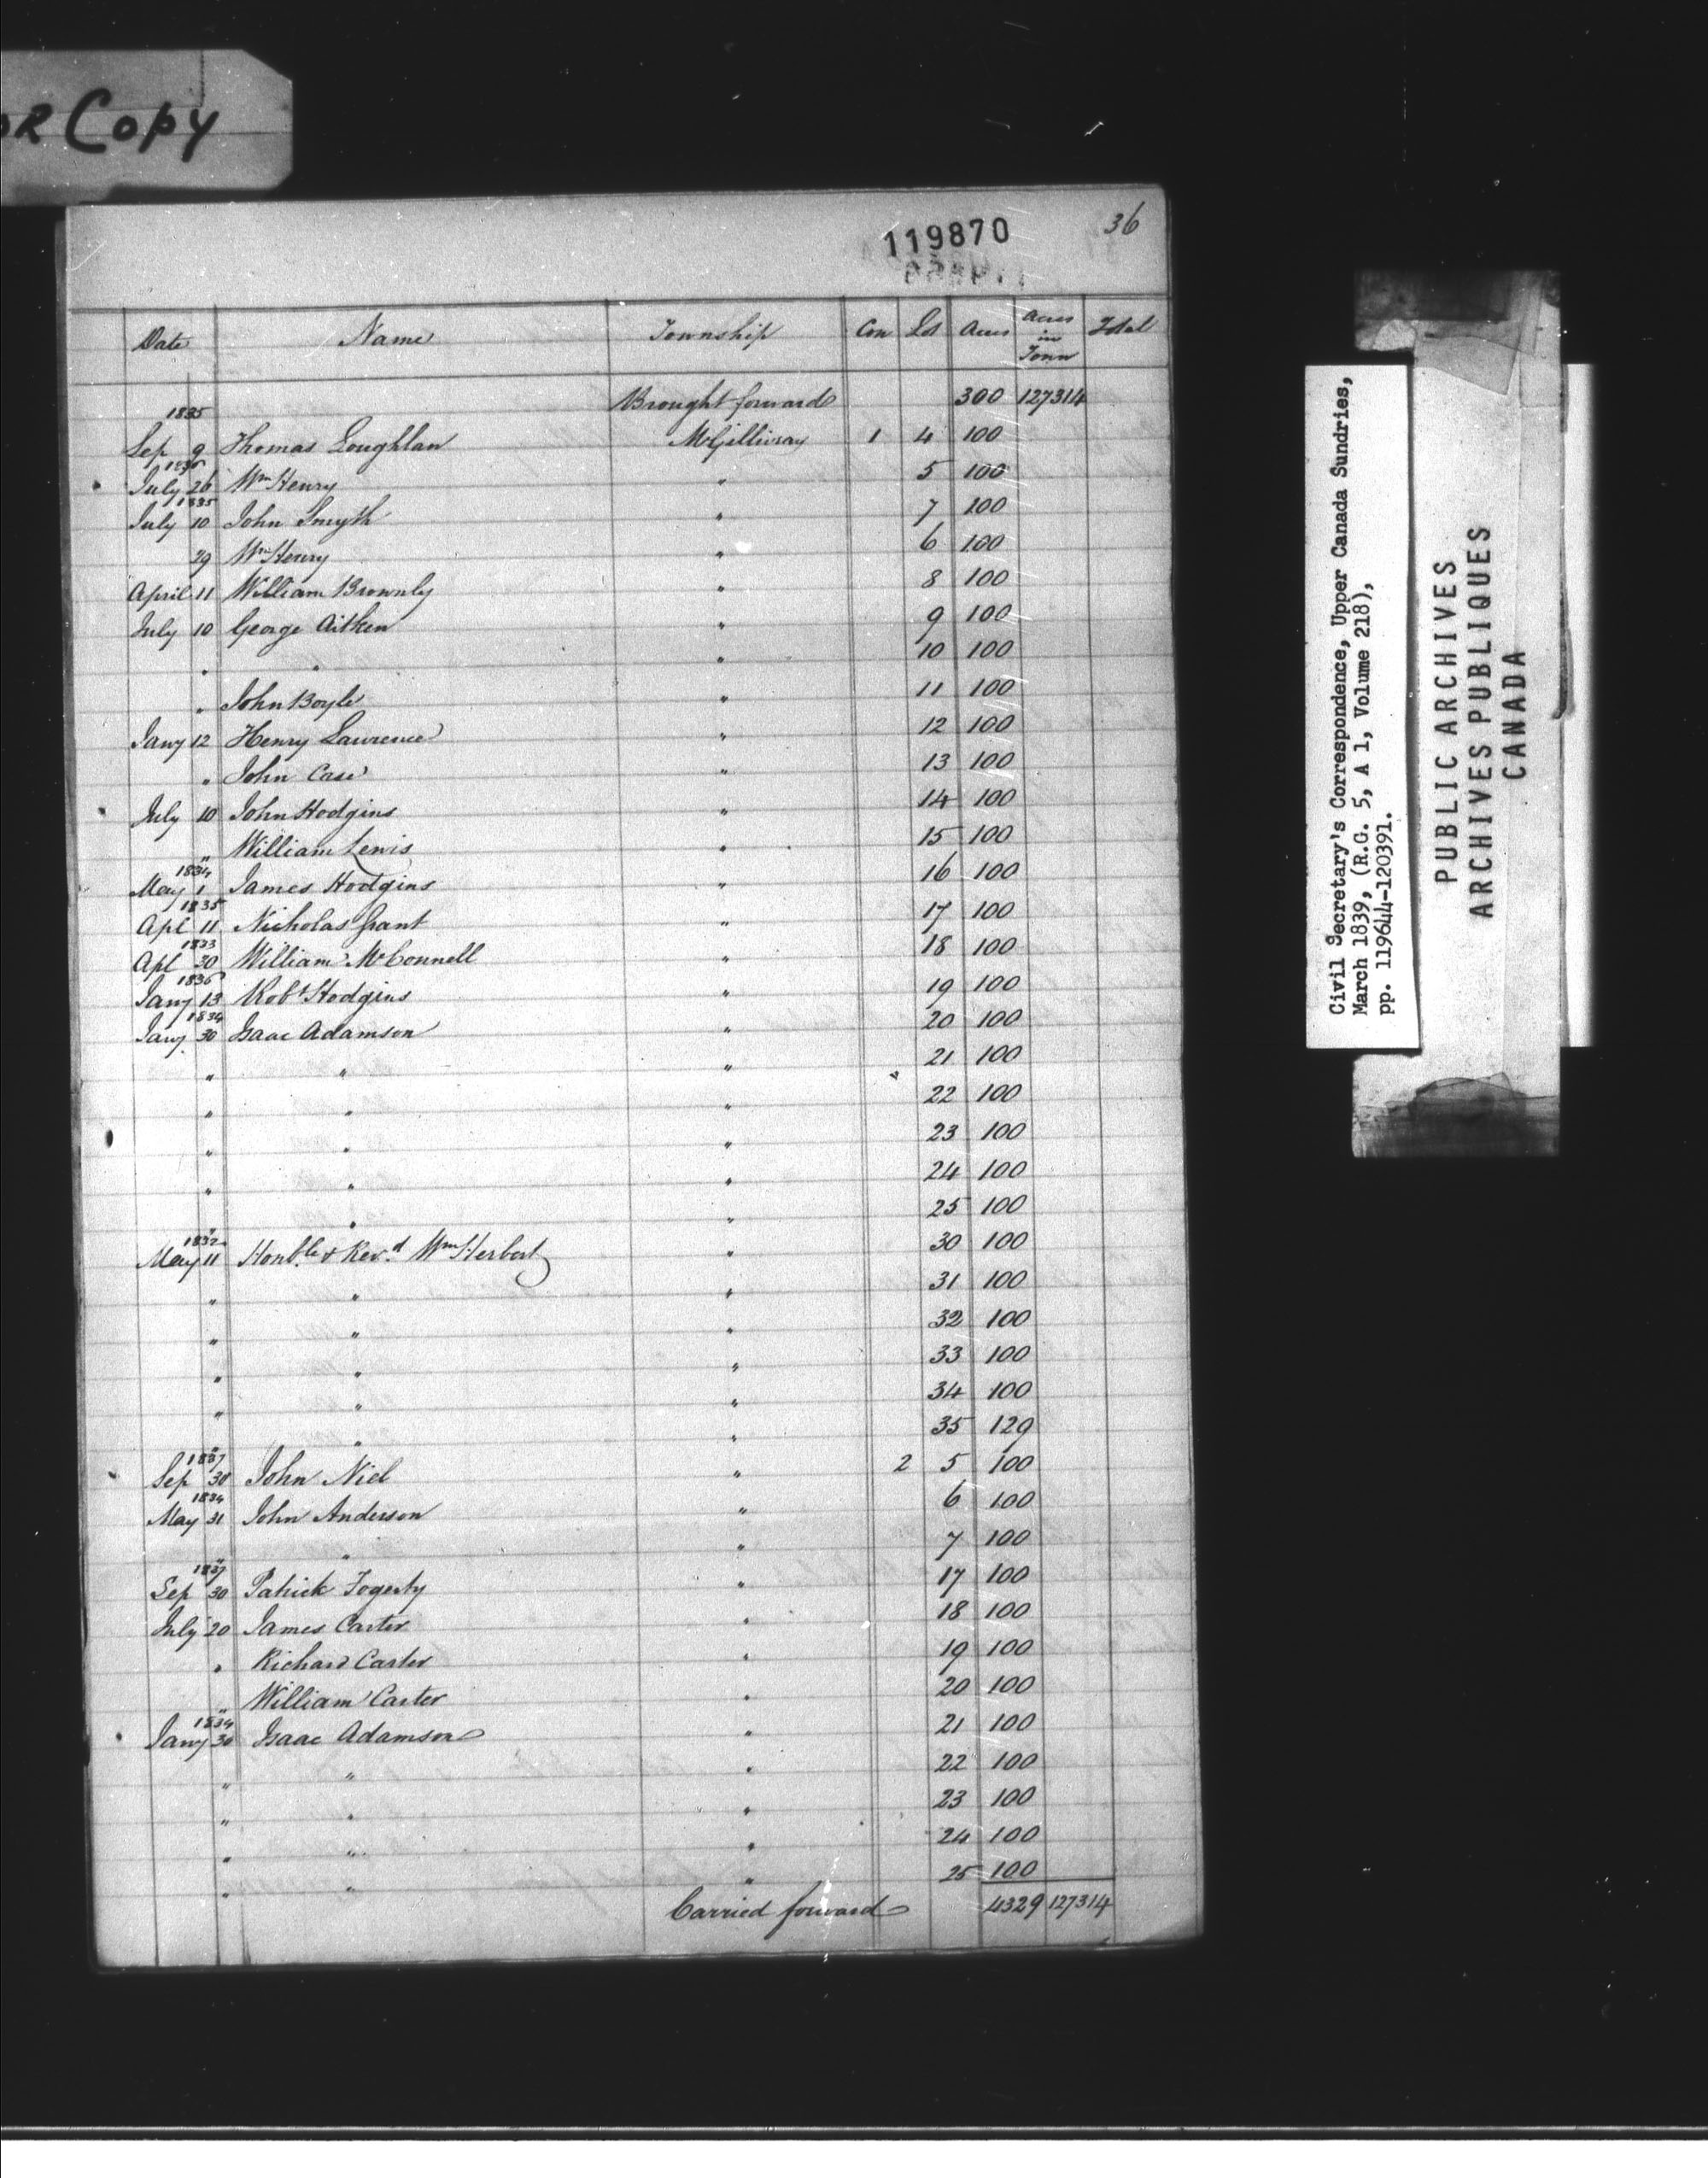 OR Copy
119870
36
Date Name Township Con Lot Acres Acres in Town Total
Brought forward 300 127314
1835
Sep 9 Thomas Loughlan McGillivray 1 4 100
1836
July 26 Wm Henry " 5 100
1835
July 10 John Smyth " 7 100
29 Wm Henry " 6 100
April 11 William Brownly " 8 100
July 10 George Aitken " 9 100
" " " 10 100
" John Boyle " 11 100
Jany 12 Henry Lawrence " 12 100
" John Case " 13 100
July 10 John Hodgins " 14 100
" William Lewis " 15 100
1834
May 1 James Hodgins " 16 100
1835
Apl 11 Nicholas Grant " 17 100
1833
Apl 30 William McConnell " 18 100
1836
Jany 13 Robt Hodgins " 19 100
1834
Jany 30 Isaac Adamson " 20 100
" " " 21 100
" " " 22 100
" " " 23 100
" " " 24 100
" " " 25 100
1832
May 11 Honble & Revd Wm Herbert " 30 100
" " " 31 100
" " " 32 100
" " " 33 100
" " " 34 100
" " " 35 129
1837
Sep 30 John Niel " 2 5 100
1834
May 31 John Anderson " 6 100
" " " 7 100
1837
Sep 30 Patrick Fogerty " 17 100
July 20 James Carter " 18 100
" Richard Carter " 19 100
" William Carter " 20 100
1834
Jany 30 Isaac Adamson " 21 100
" " " 22 100
" " " 23 100
" " " 24 100
" " " 25 100
Carried forward 4329 127314
Civil Secretary's Correspondence, Upper Canada Sundries,
March 1839, (R.G. 5, A 1, Volume 218),
pp. 119644-120391.
PUBLIC ARCHIVES
ARCHIVES PUBLIQUES
CANADA